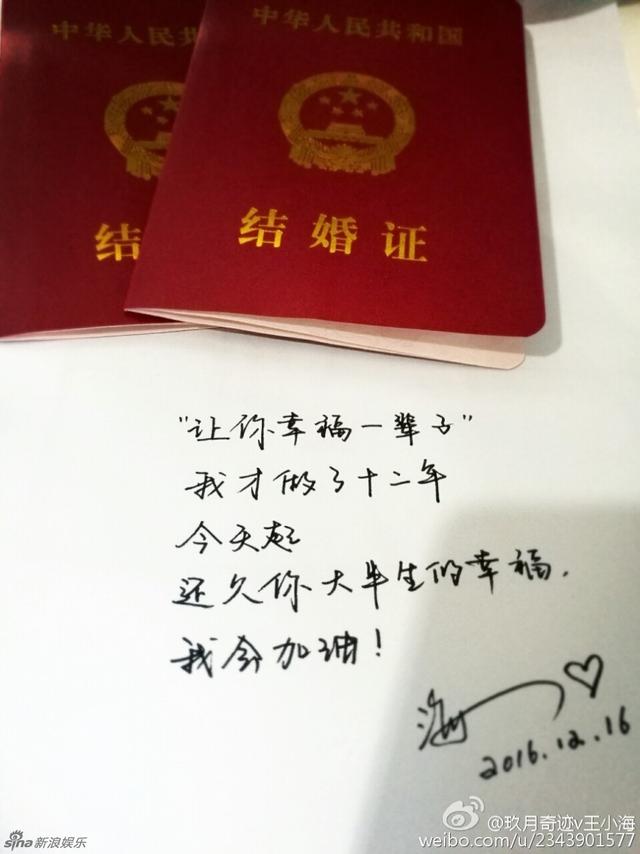 中华人民共
中华人民共和国
结
结婚证
"让你幸福一辈子"
我才做了十二年
今天起
还欠你大半生的幸福.
我会加油!
海 ♡
2016.12.16
@玖月奇迹v王小海
weibo.com/u/2343901577
sina新浪娱乐